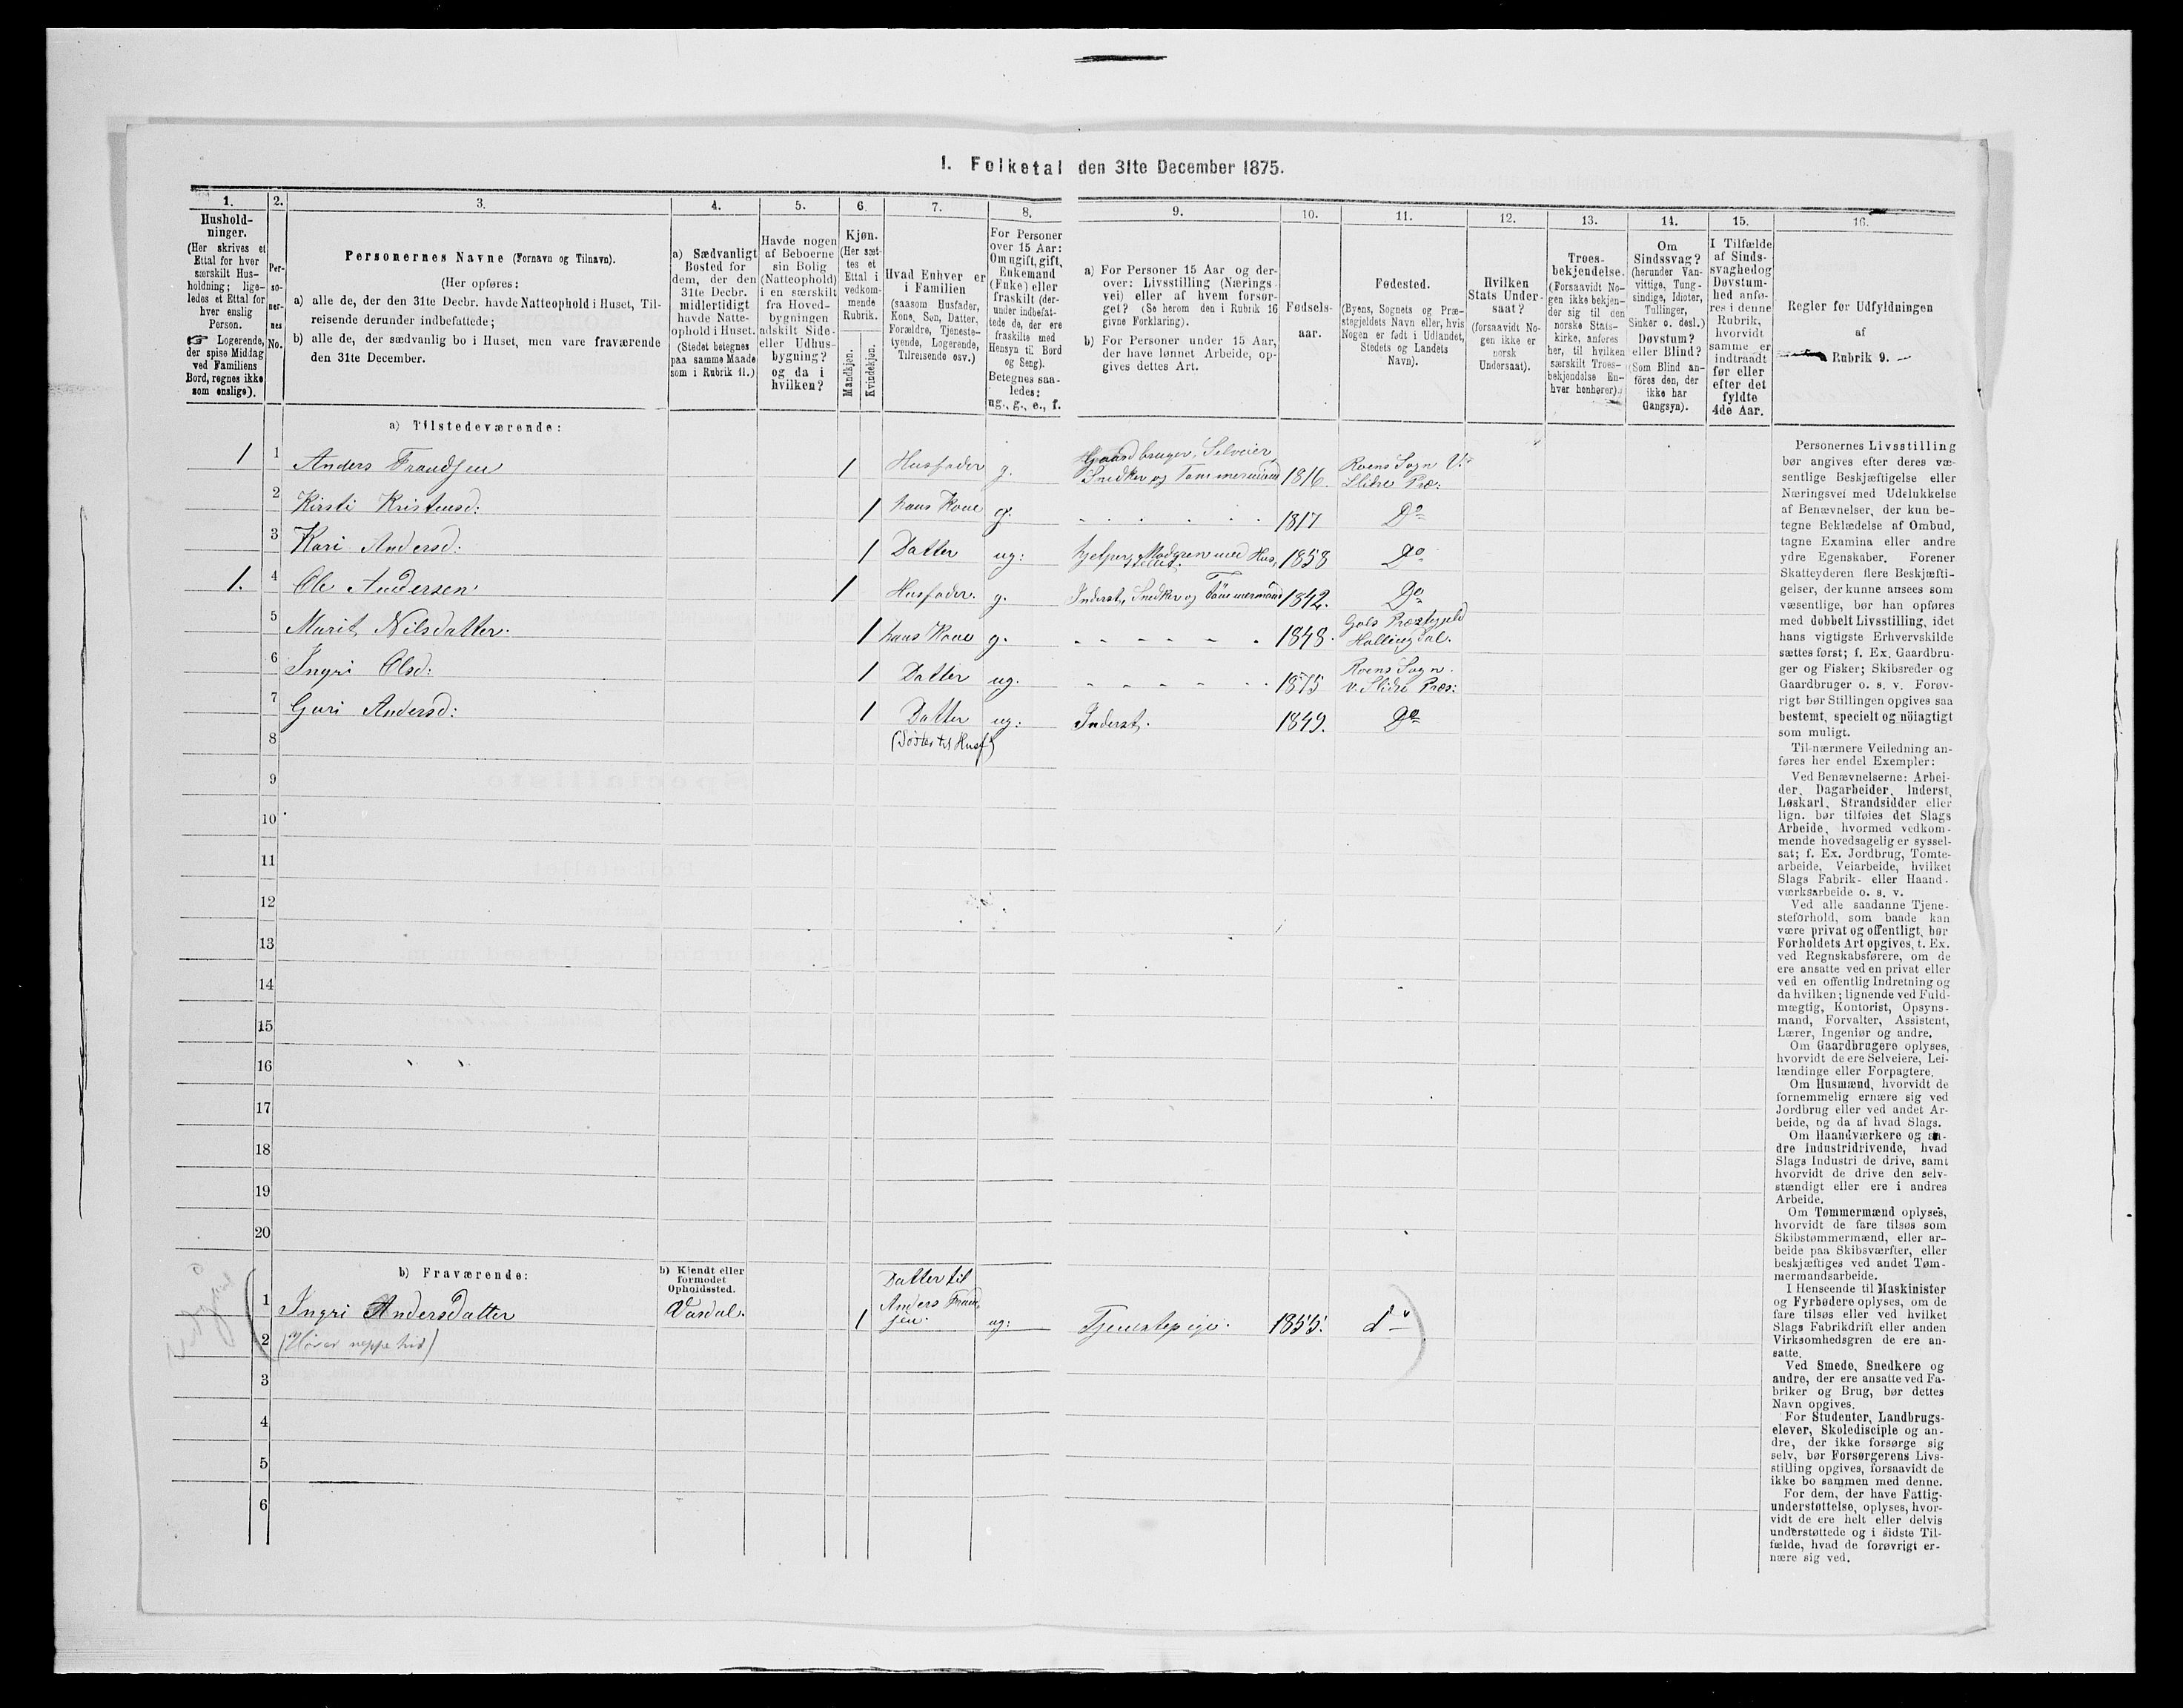 1. Folketal den 31te December 1875.
1.
Hushold-
ninger.
(Her skrives et
Ettal for hver
særskilt Hus-
holdning; lige-
ledes et Ettal for
hver enslig
Person.
☞ Logerende,
der spise Middag
ved Familiens
Bord, regnes ikke
som enslige).
2.
Per-
so-
ner-
nes
No.
3.
Personernes Navne (Fornavn og Tilnavn).
(Her opføres:
a) alle de, der den 31te Decbr. havde Natteophold i Huset, Til-
reisende derunder indbefattede;
b) alle de, der sædvanlig bo i Huset, men vare fraværende
den 31te December.
4.
a) Sædvanligt
Bosted for
dem, der den
31te Decbr.
midlertidigt
havde Natte-
ophold i Huset.
(Stedet betegnes
paa samme Maade
som i Rubrik 11.)
5.
Havde nogen
af Beboerne
sin Bolig
(Natteophold)
i en særskilt
fra Hoved-
bygningen
adskilt Side-
eller Udhus-
bygning?
og da i
hvilken?
6.
Kjøn.
(Her sæt-
tes et
Ettal i
vedkom-
mende
Rubrik.
Mandkjøn.
Kvindekjøn.
7.
Hvad Enhver er
i Familien
(saasom Husfader,
Kone, Søn, Datter,
Forældre, Tjeneste-
tyende, Logerende,
Tilreisende osv.)
8.
For Personer
over 15 Aar:
Om ugift, gift,
Enkemand
(Enke) eller
fraskilt (der-
under indbefat-
tede de, der ere
fraskilte med
Hensyn til Bord
og Seng).
Betegnes saa-
ledes:
ug., g., e., f.
9.
a) For Personer 15 Aar og der-
over: Livsstilling (Nærings-
vei) eller af hvem forsør-
get? (Se herom den i Rubrik 16
givne Forklaring).
b) For Personer under 15 Aar,
der have lønnet Arbeide, op-
gives dettes Art.
10.
Fødsels-
aar.
11.
Fødested.
(Byens, Sognets og Præ-
stegjeldets Navn eller, hvis
Nogen er født i Udlandet,
Stedets og Landets
Navn).
12.
Hvilken
Stats Under-
saat?
(forsaavidt No-
gen ikke er
norsk
Undersaat).
13.
Troes-
bekjendelse.
(Forsaavidt No-
gen ikke bekjen-
der sig til den
norske Stats-
kirke, anføres
her, til hvilken
særskilt Troes-
bekjendelse En-
hver henhører).
14.
Om
Sindssvag?
(herunder Van-
vittige, Tung-
sindige, Idioter,
Tullinger,
Sinker o. desl.)
Døvstum?
eller Blind?
(Som Blind an-
føres den, der
ikke har
Gangsyn).
15.
I Tilfælde
af Sinds-
svaghed og
Døvstum-
hed anfø-
res i denne
Rubrik,
hvorvidt
samme er
indtraadt
før eller
efter det
fyldte
4de Aar.
16.
Regler for Udfyldningen
af
Rubrik 9.
a) Tilstedeværende:
1 1 Anders Frandsen 1 Husfader g. Gaardbruger, Selveier, Snedker og Tømmermand 1816. Roens Sogn V. Slidre Præ:
2 Kirsti Kristensd: 1 hans Kone g. 1817 Do
3 Kari Andersd: 1 Datter ug: hjelper Modgren med Hus, stellet. 1858 Do
1. 4 Ole Andersen 1 Husfader. g. Inderst, Snedker og Tømmermand 1842. Do
5 Marit Nilsdatter. 1 hans Kone g. 1848. Gols Præstgjeld Hallingdal.
6 Ingri Olsd: 1 Datter ug. 1875 Roens Sogn V. Slidre Præs:
7 Guri Andersd: 1 Datter ug: Inderst. 1849. Do
8 (Søster til Husf)
9
10
11
12
13
14
15
16
17
18
19
20
b) Fraværende:
b) Kjendt eller
formodet
Opholdssted.
1 Ingri Andersdatter Vasdal. 1 Datter til Anders Frandsen. ug: Tjenestepige. 1855. do
2 (Hører neppe hid)
3
4
5
6
Personernes Livsstilling
bør angives efter deres væ-
sentlige Beskjæftigelse eller
Næringsvei med Udelukkelse
af Benævnelser, der kun be-
tegne Beklædelse af Ombud,
tagne Examina eller andre
ydre Egenskaber. Forener
Skatteyderen flere Beskjæfti-
gelser, der kunne ansees som
væsentlige, bør han opføres
med dobbelt Livsstilling, idet
hans vigtigste Erhvervskilde
sættes først; f. Ex. Gaardbru-
ger og Fisker; Skibsreder og
Gaardbruger o. s. v. Forøv-
rigt bør Stillingen opgives saa
bestemt, specielt og nöiagtigt
som muligt.
Til nærmere Veiledning an-
føres her endel Exempler:
Ved Benævnelserne: Arbei-
der, Dagarbeider, Inderst,
Løskarl, Strandsidder eller
lign. bør tilføies det Slags
Arbeide, hvormed vedkom-
mende hovedsagelig er syssel-
sat; f. Ex. Jordbrug, Tomte-
arbeide, Veiarbeide, hvilket
Slags Fabrik- eller Haand-
værksarbeide o. s. v.
Ved alle saadanne Tjene-
steforhold, som baade kan
være privat og offentligt, bør
Forholdets Art opgives, t. Ex.
ved Regnskabsførere, om de
ere ansatte ved en privat eller
ved en offentlig Indretning og
da hvilken; lignende ved Fuld-
mægtig, Kontorist, Opsyns-
mand, Forvalter, Assistent,
Lærer, Ingeniør og andre.
Om Gaardbrugere oplyses,
hvorvidt de ere Selveiere, Lei-
lændinge eller Forpagtere.
Om Husmænd, hvorvidt de
fornemmelig ernære sig ved
Jordbrug eller ved andet Ar-
beide, og da af hvad Slags.
Om Haandværkere og an-
dre Industridrivende, hvad
Slags Industri de drive, samt
hvorvidt de drive den selv-
stændigt eller ere i andres
Arbeide.
Om Tømmermænd oplyses,
hvorvidt de fare tilsøs som
Skibstømmermænd, eller ar-
beide paa Skibsværfter, eller
beskjæftiges ved andet Tøm-
mermandsarbeide.
I Henseende til Maskinister
og Fyrbødere oplyses, om de
fare tilsøs eller ved hvilket
Slags Fabrikdrift eller anden
Virksomhedsgren de ere an-
satte.
Ved Smede, Snedkere og
andre, der ere ansatte ved Fa-
briker og Brug, bør dettes
Navn opgives.
For Studenter, Landbrugs-
elever, Skoledisciple og an-
dre, der ikke forsørge sig
selv, bør Forsørgerens Livs-
stilling opgives, forsaavidt de
ikke bo sammen med denne.
For dem, der have Fattig-
understøttelse, oplyses, hvor-
vidt de ere helt eller delvis
understøttede og i sidste Til-
fælde, hvad de forøvrigt er-
nære sig ved.